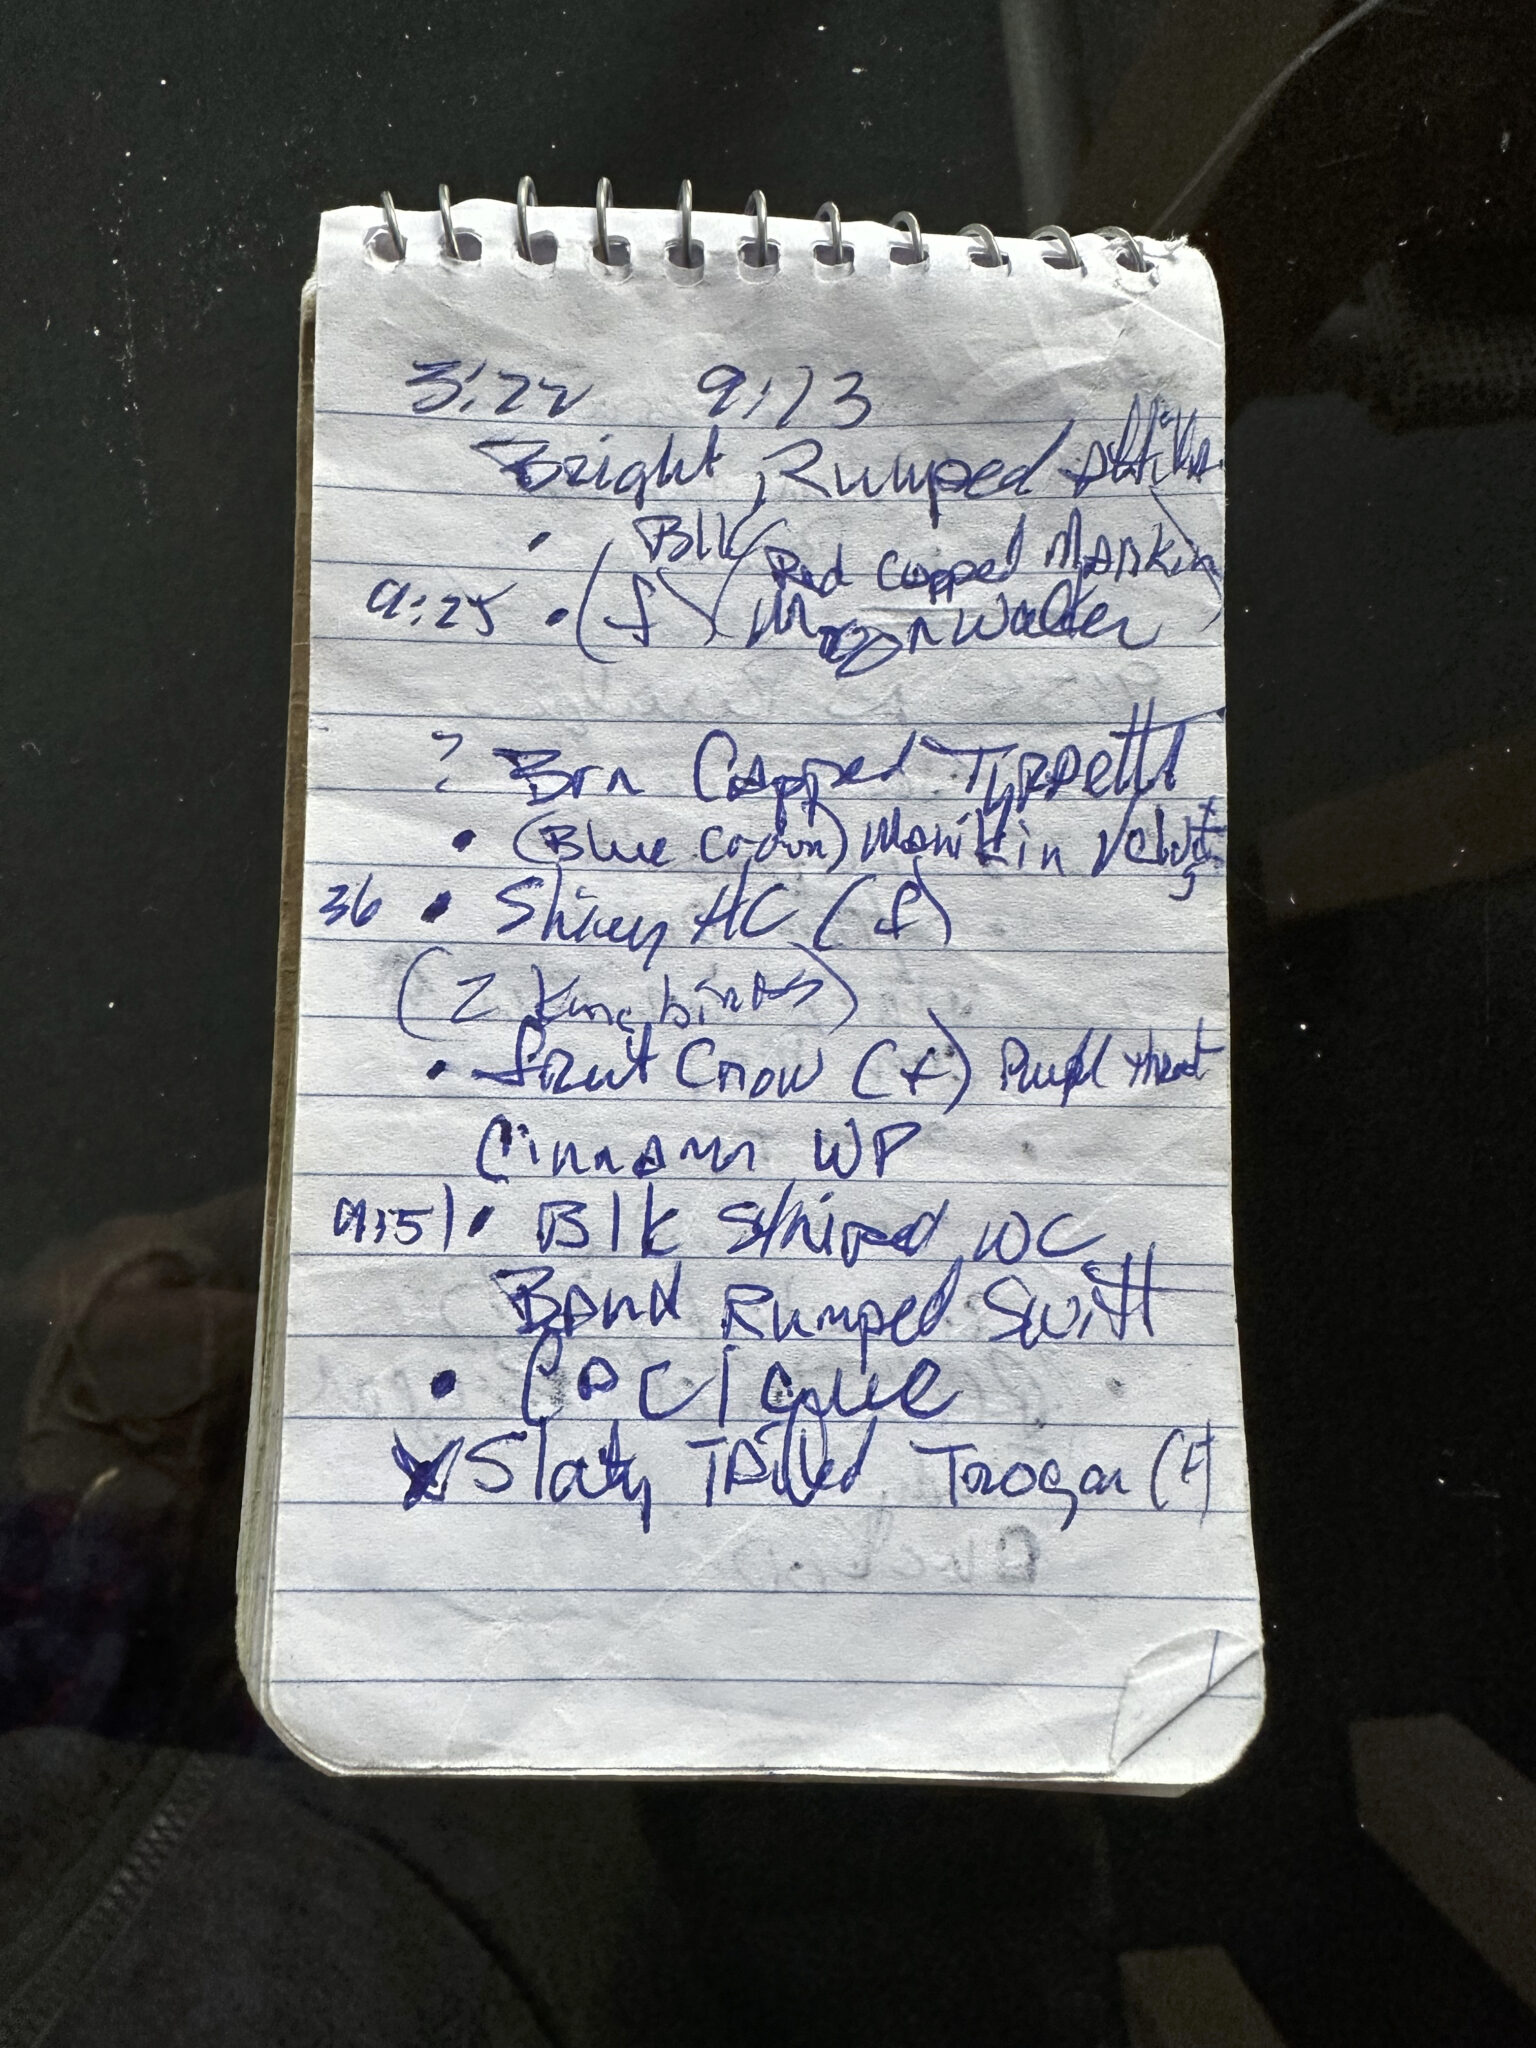 3:22 9:13
Bright Rumped Attila
• Blk
(Red Capped Mankin
9:25 • (f) Moonwalker)
? Brn Capped Tyrpett
• (Blue Crown) Manikin Velvet
36 • Shiny HC (f)
(2 Kingbirds)
• fruit Crow (f) Purpl throat
Cinnamn WP
9:51 • Blk Striped WC
Band Rumped Swift
• Cacique
x Slaty Tailed Trogan (f)